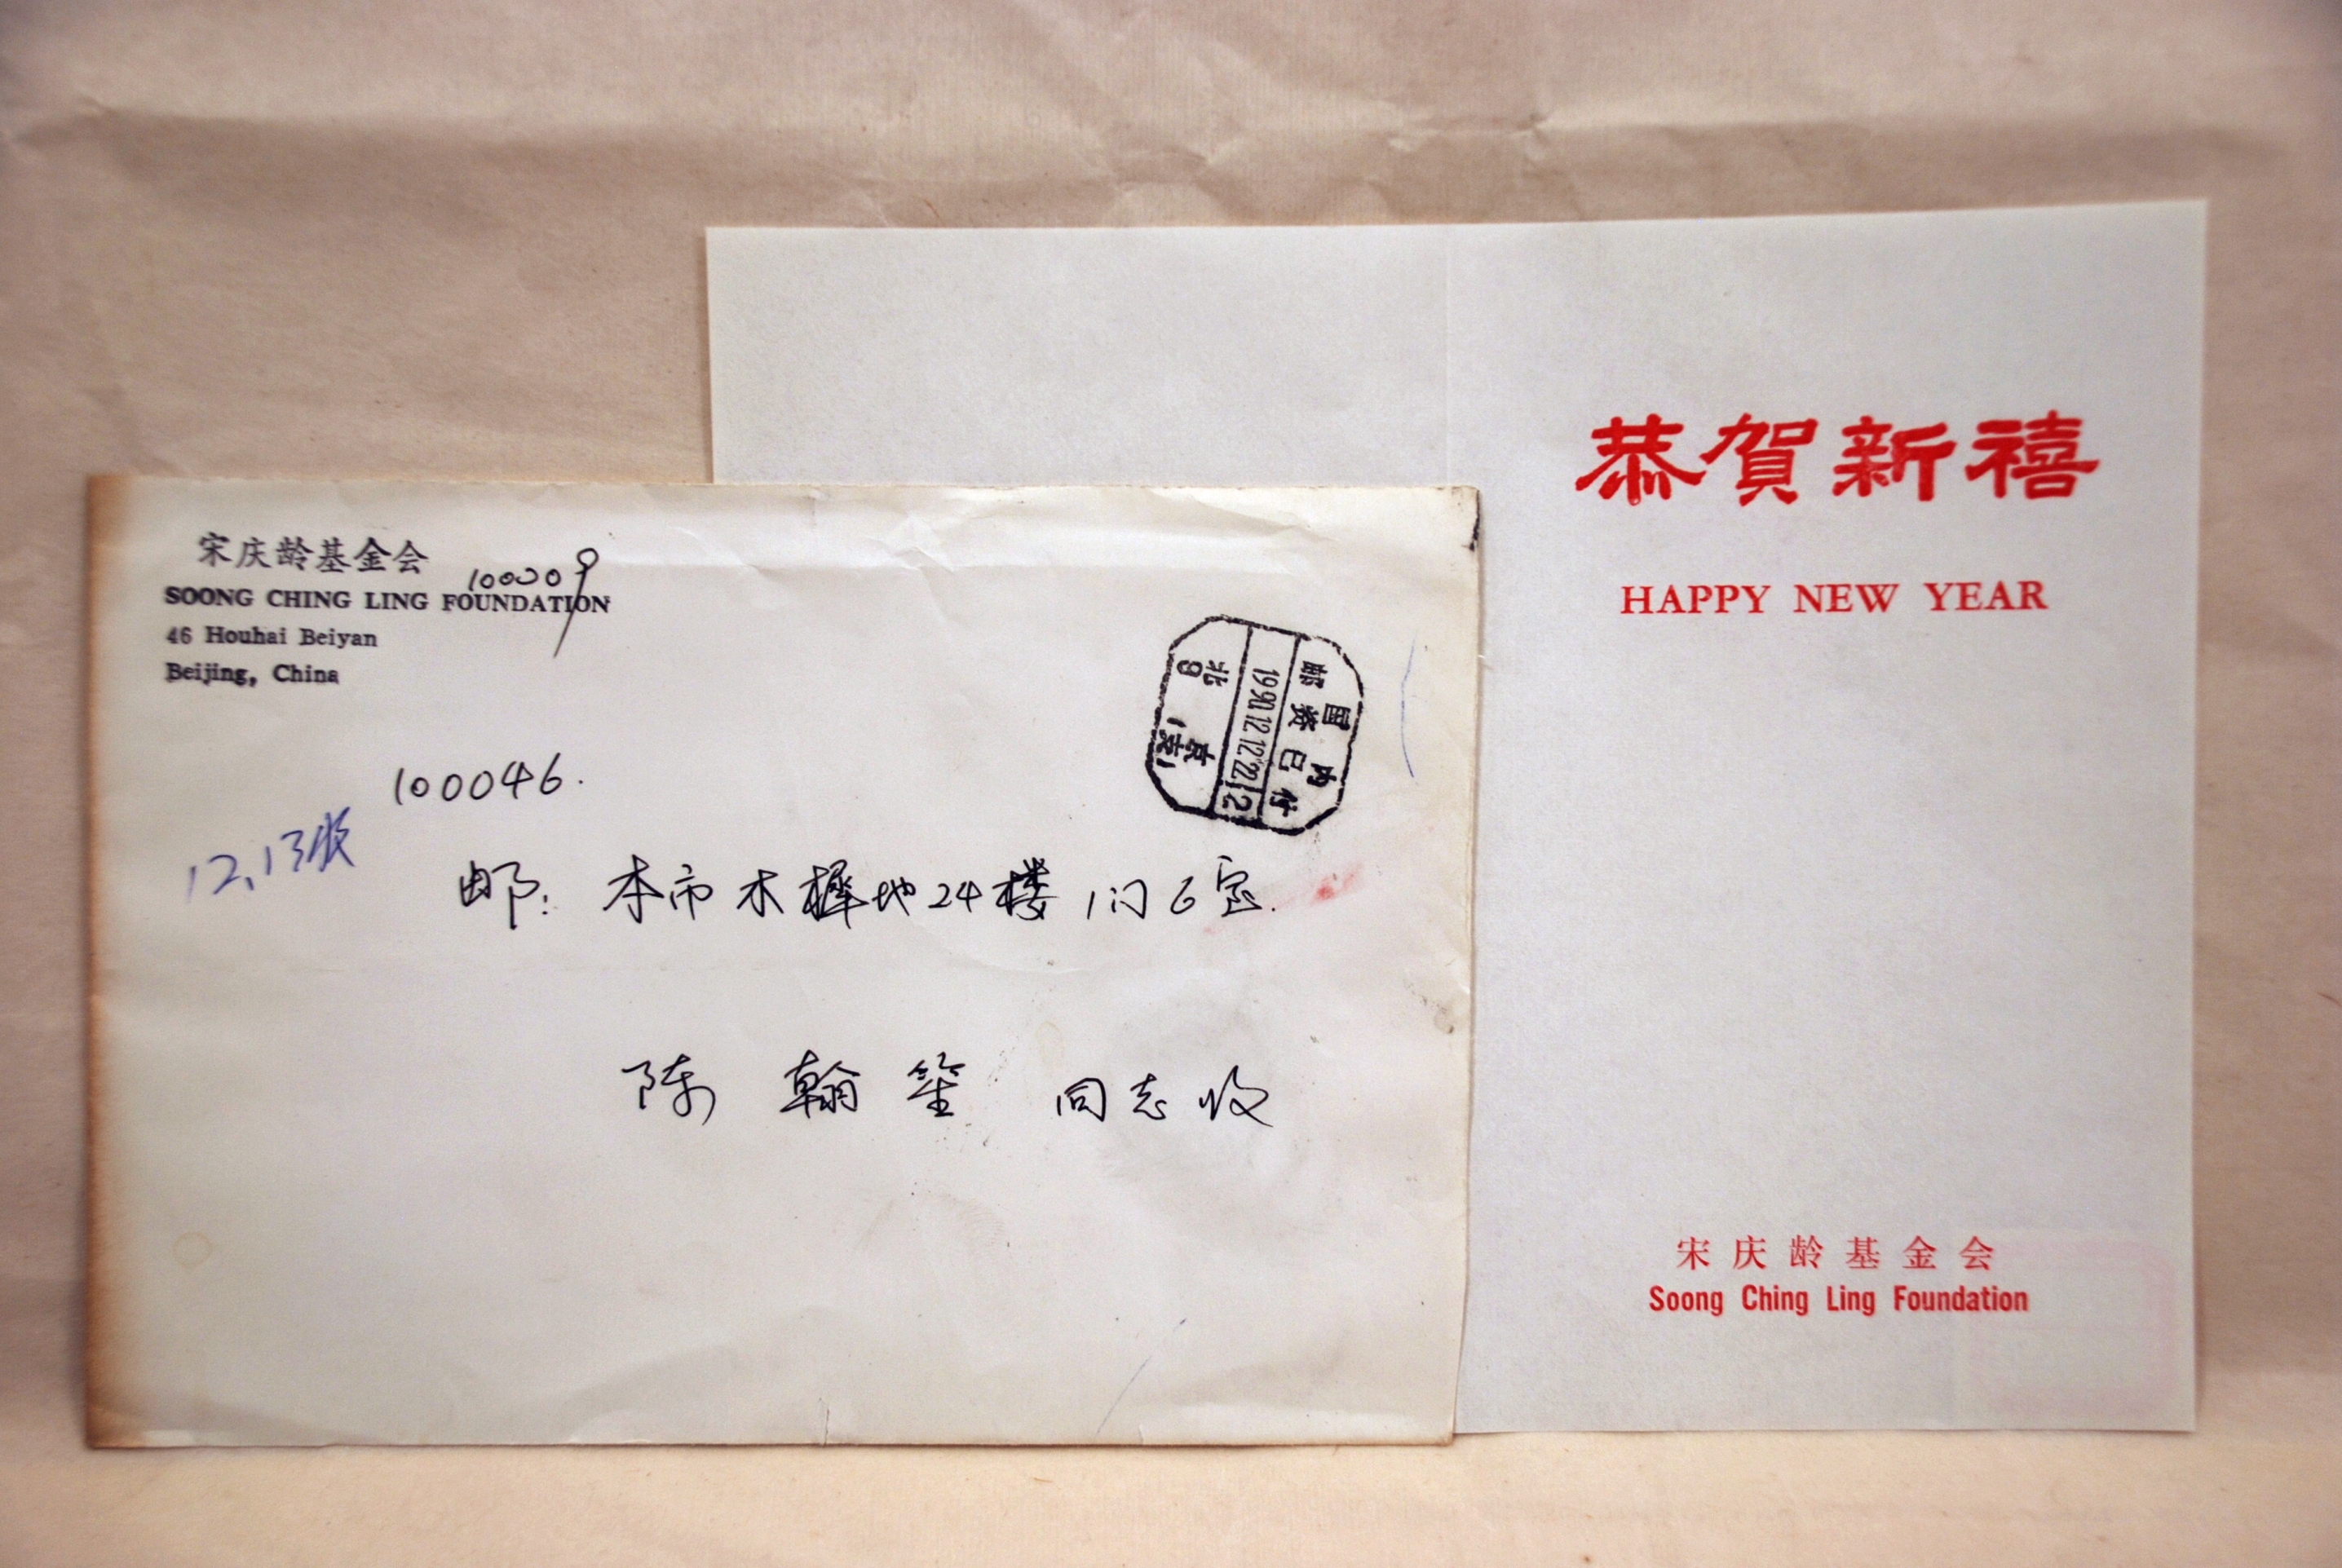 宋庆龄基金会
100009
SOONG CHING LING FOUNDATION
46 Houhai Beiyan
Beijing, China
国内
邮资已付
1990.12.12.22 12
北京
9(支)
100046.
12,13收
邮: 本市木樨地24楼1门6室.
陈翰笙 同志收
恭賀新禧
HAPPY NEW YEAR
宋庆龄基金会
Soong Ching Ling Foundation